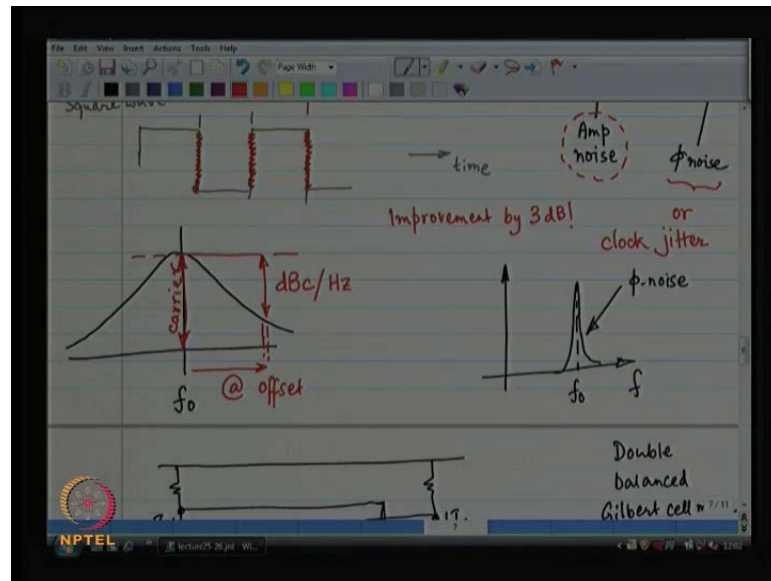 File Edit View Insert Actions Tools Help
Page Width
B I
Square wave
time
Amp
noise
φ noise
or
clock jitter
Improvement by 3 dB!
carrier
dBc/Hz
@ offset
f₀
φ-noise
f₀
f
Double
balanced
Gilbert cell
7/11
NPTEL
lecture25-26.jnt - Wi...
12:02